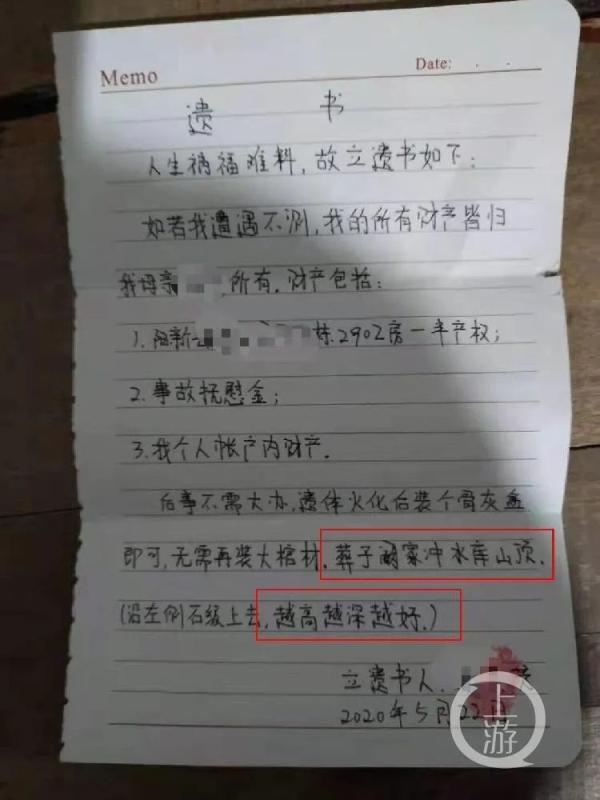 Memo Date: . .
遗 书
人生祸福难料,故立遗书如下:
如若我遭遇不测,我的所有财产皆归
我母亲 所有。财产包括:
1.阳新 栋2902房一半产权;
2.事故抚慰金;
3.我个人帐户内财产。
后事不需大办,遗体火化后装个骨灰盒
即可,无需再装大棺材。葬于 家冲水库山顶。
(沿左侧石级上去,越高越深越好。)
立遗书人.
2020年5月22日
上游